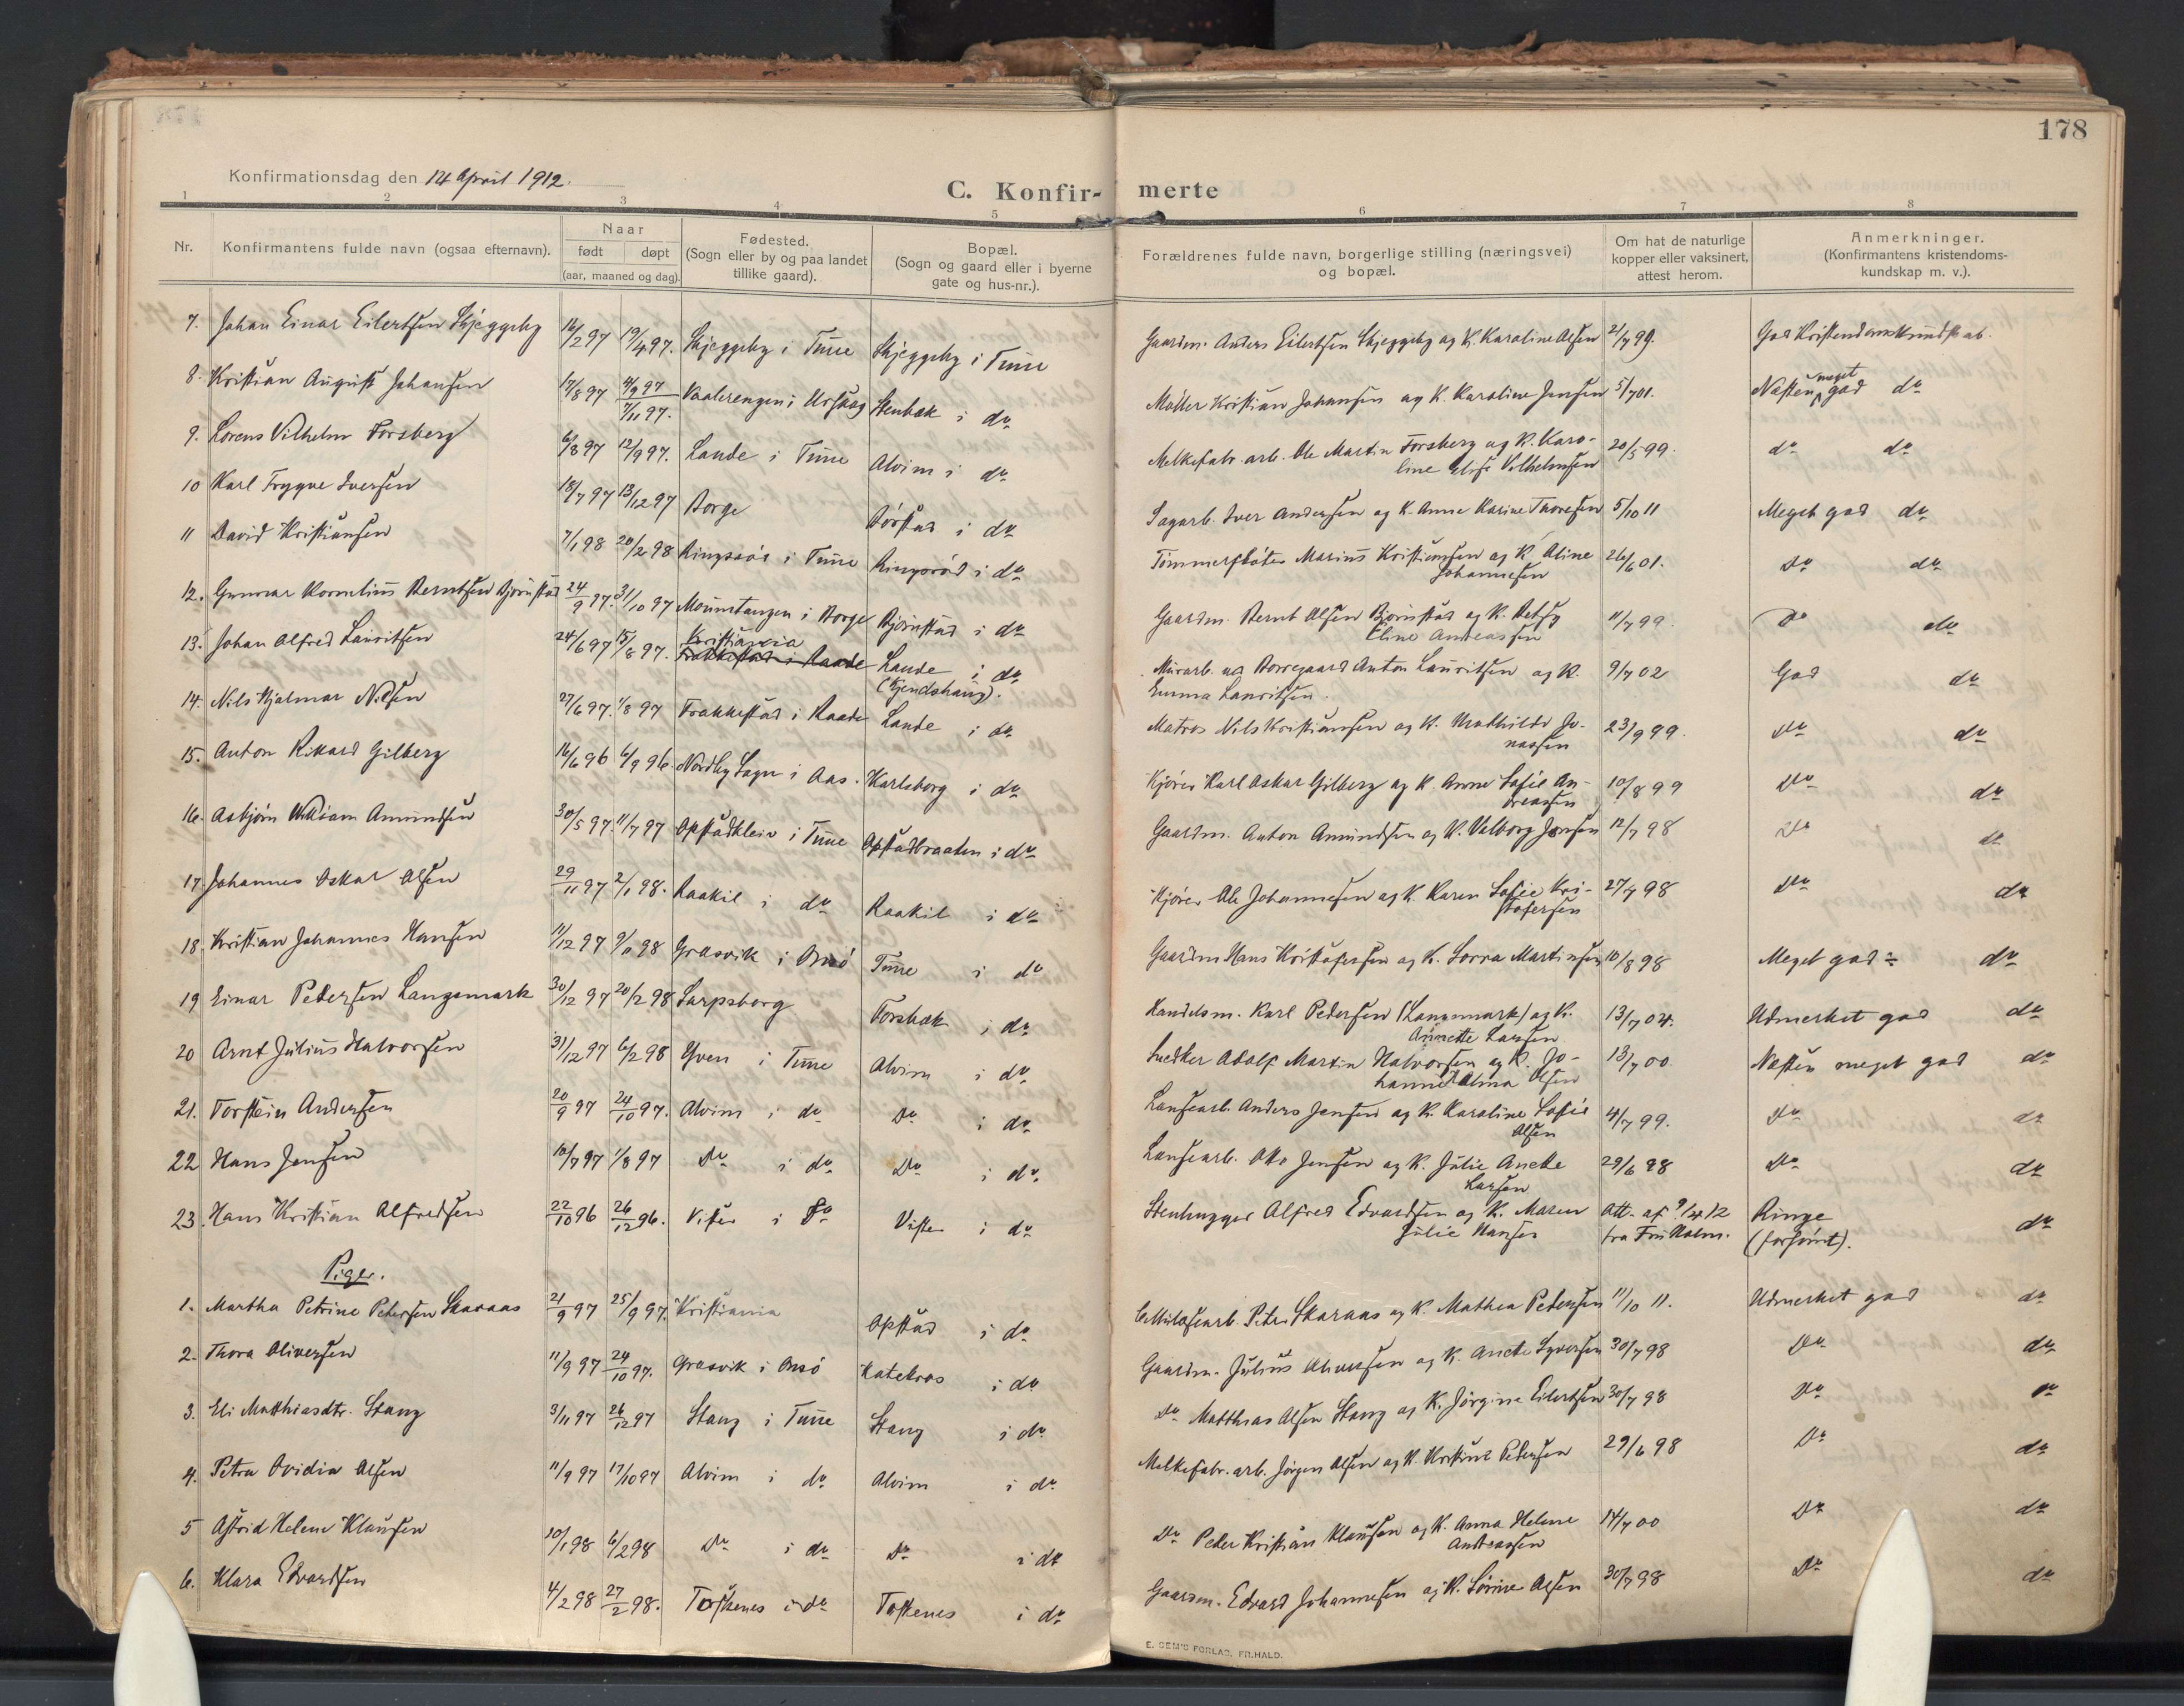 178
Konfirmationsdag den 14 April 1912.
C. Konfir- merte
1 2 3 4 5 6 7 8
Nr. Konfirmantens fulde navn (ogsaa efternavn). Naar født døpt (aar, maaned og dag). Fødested. (Sogn eller by og paa landet tillike gaard). Bopæl. (Sogn og gaard eller i byerne gate og hus-nr.). Forældrenes fulde navn, borgerlige stilling (næringsvei) og bopæl. Om hat de naturlige kopper eller vaksinert, attest herom. Anmerkninger. (Konfirmantens kristendoms- kundskap m. v.).
7. Johan Einar Eilertsen Skjeggeby 16/2 97 19/4 97. Skjeggeby i Tune Skjeggeby i Tune Gaardm. Anders Eilertsen Skjeggeby og K. Karoline Olsen 21/7 99. God Kristendomskundskab.
8. Kristian August Johansen 17/8 97 4/9 97 7/11 97. Vaalerengen i Urskog Stenbæk i do Møller Kristian Johansen og K. Karoline Jensen 5/7 01. Næsten meget god do
9. Lorens Vilhelm Forsberg 6/8 97 12/9 97. Lande i Tune Alvim i do Melkefabr. arb. Ole Martin Forsberg og K. Karo-
line Elise Vilhelmsen 20/5 99. do do
10 Karl Trygve Iversen 18/7 97 13/12 97 Borge Børstad i do Sagarb. Iver Andersen og K. Anne Karine Thoresen 5/10 11 Meget god do
11 David Kristiansen 7/1 98 20/2 98 Ringsrød i Tune Ringsrød i do Tømmerfløter Marius Kristiansen og K. Oline
Johannesen 26/6 01. Do do
12. Gunnar Kornelius Berntsen Bjørnstad 24/9 97. 31/10 97 Moumtangen i Borge Bjørnstad i do Gaardm. Bernt Olsen Bjørnstad og K. Betsy
Eline Andreassen 11/7 99. Do do
13. Johan Alfred Lauritsen 24/6 97 15/8 97. Kristiania
Trakkestad i Raade Lande i do
(Kjendshaug). Murarb. ved Borregaard Anton Lauritsen og K.
Emma Lauritsen. 9/7 02 God do
14. Nils Hjalmar Nilsen 27/6 97. 1/8 97 Trakkestad i Raade Lande i do Matros Nils Kristiansen og K. Mathilde Jo-
nassen 23/9 99. Do do
15. Anton Rikard Gilberg 16/6 96 6/9 96. Nordby Sogn i Aas. Karlsborg i do Kjører Karl Oskar Gilberg og K. Anne Sofie An-
dreassen 10/8 99 Do do
16. Asbjørn William Amundsen 30/5 97. 11/7 97 Opstadkleiv i Tune Opstadbraaten i do Gaardm. Anton Amundsen og K. Valborg Jensen 12/7 98 Do do
17. Johannes Oskar Olsen 29/11 97 2/1 98. Raakil i do Raakil i do Kjører Ole Johannesen og K. Karen Sofie Kri-
stofersen 27/7 98 Do do
18. Kristian Johannes Hansen 11/12 97 9/1 98 Græsvik i Onsø Tune i do Gaardm Hans Kristofersen og K. Lorra Martinsen 10/8 98 Meget god ÷ do
19 Einar Pedersen Langemark 30/12 97 20/2 98 Sarpsborg Torsbæk i do Handelsm. Karl Pedersen (Langemark) og K.
Annette Larsen 13/7 04. Udmerket god do
20 Arnt Julius Halvorsen 31/12 97 6/2 98 Yven i Tune Alvim i do Snedker Adolf Martin Halvorsen og K. Jo-
hanne Alma Olsen 13/7 00. Næsten meget god do
21. Torstein Andersen 20/9 97 24/10 97. Alvim i do Do i do Lænsearb. Anders Jensen og K. Karoline Sofie
Olsen 4/7 99. Do do
22 Hans Jensen 10/7 97 1/8 97 Do i do Do i do Lænsearb. Otto Jensen og K. Julie Anette
Larsen 29/6 98 Do do
23. Hans Kristian Alfredsen 22/10 96 26/12 96. Vister i Do Vister i do Stenhugger Alfred Edvardsen og K. Maren
Julie Hansen Att. af 9/4 12
fra Fru Holm. Ringe
(forsømt). do
Piger.
1. Martha Petrine Pedersen Skaraas 21/9 97 25/9 97. Kristiania Opstad i do Cellulosearb. Peter Skaraas og K. Mathea Pedersen 11/10 11. Udmerket god do
2. Thora Oliversen 11/9 97 24/10 97. Græsvik i Onsø Katekros i do Gaardm. Julius Oliversen og K. Anette Syversen 30/7 98 Do do
3. Eli Matthiasdtr. Stang 3/11 97 26/12 97 Stang i Tune Stang i do Do Matthias Olsen Stang og K. Jørgine Eilertsen 30/7 98 Do Do
4. Petra Ovidia Olsen 11/9 97 17/10 97 Alvim i do Alvim i do Melkefabr. arb. Jørgen Olsen og K. Kristine Pedersen 29/6 98 Do do
5 Astrid Helene Klausen 20/1 98 6/2 98 Do i do Do i do Do Peder Kristian Klausen og K. Anna Helene
Andreassen 14/7 00 Do do
6. Klara Edvardsen 4/2 98 27/2 98. Toskenes i do Toskenes i do Gaardm. Edvard Johannesen og K. Lovise Olsen 30/7 98 Do do
E. SEM'S FORLAG, FR.HALD.